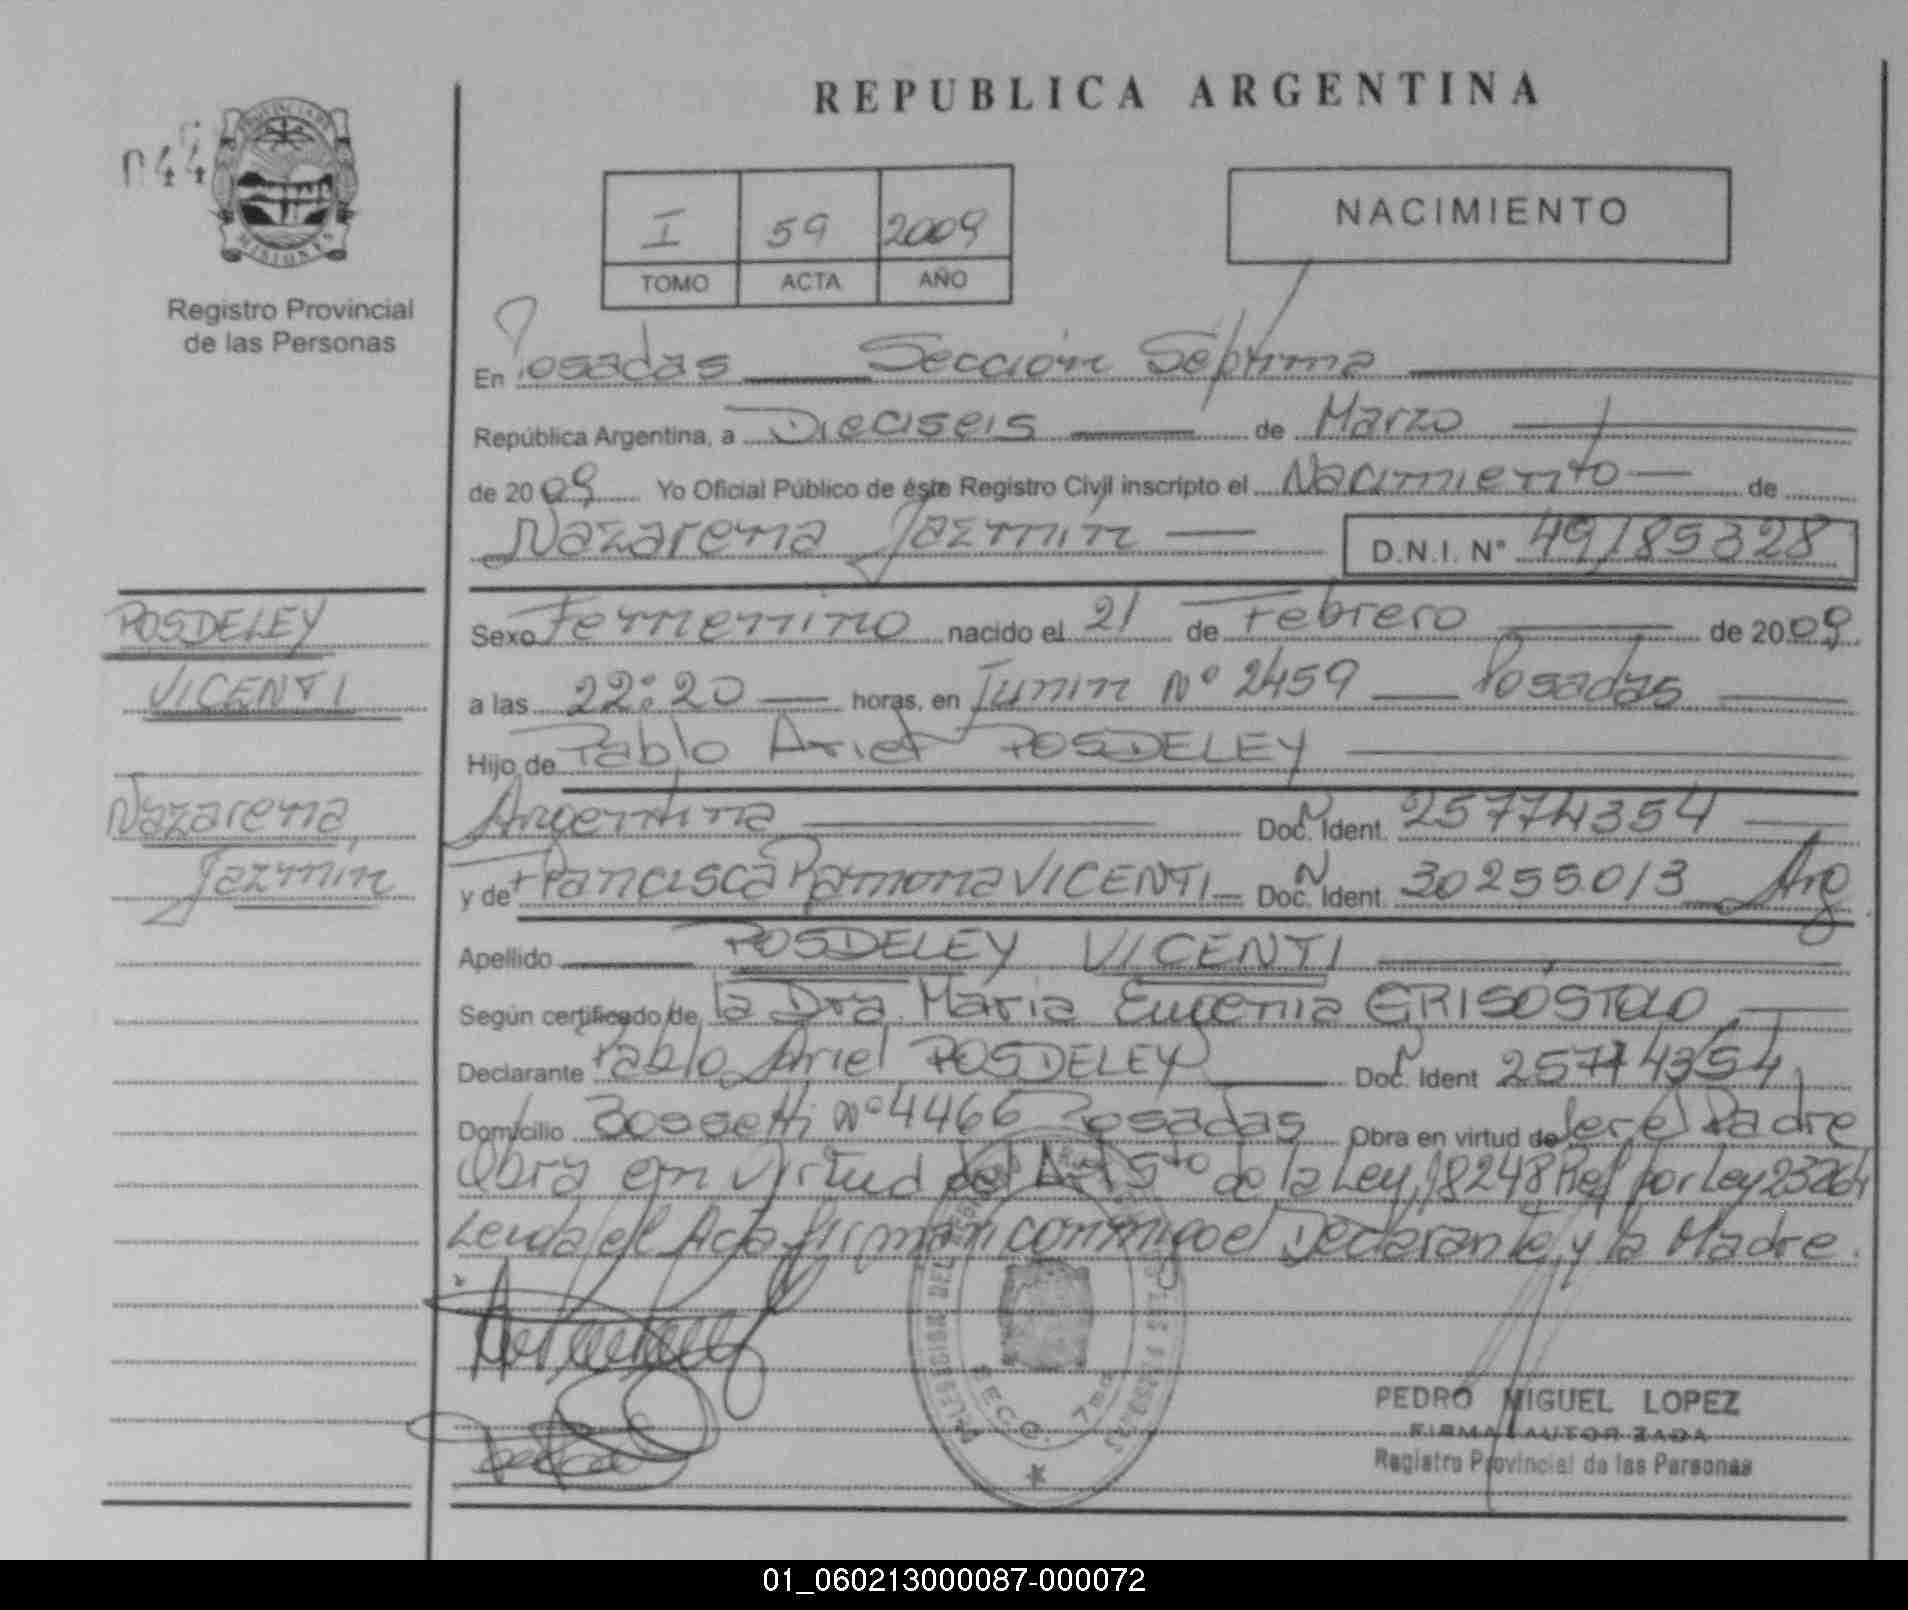 REPUBLICA ARGENTINA
PROVINCIA DE
MISIONES
Registro Provincial
de las Personas
I 59 2009
TOMO ACTA AÑO
NACIMIENTO
En Posadas Sección Séptima
República Argentina, a Dieciseis de Marzo
de 2009 Yo Oficial Público de éste Registro Civil inscripto el Nacimiento de
Nazarena Jazmín D.N.I. N° 49185328
POSDELEY
VICENTI
Nazarena
Jazmín
Sexo Femenino nacido el 21 de Febrero de 2009
a las 22:20 horas, en Junin N° 2459 Posadas
Hijo de Pablo Ariel POSDELEY
Argentina Doc. Ident. 25774354
y de Francisca Ramona VICENTI Doc. Ident. 30255013 Arg
Apellido POSDELEY VICENTI
Según certificado de la Dra. Maria Eugenia GRISOSTOLO
Declarante Pablo Ariel POSDELEY Doc. Ident 25774354
Domicilio Bossetti N° 4466 Posadas Obra en virtud de ser el Padre
Obra en virtud del Art 5to de la Ley 18248 Ref por Ley 23264
Leida el Acta firman conmigo el Declarante y la Madre.
SECC. 7ma
PEDRO MIGUEL LOPEZ
FIRMA AUTORIZADA
Registro Provincial de las Personas
01_060213000087-000072